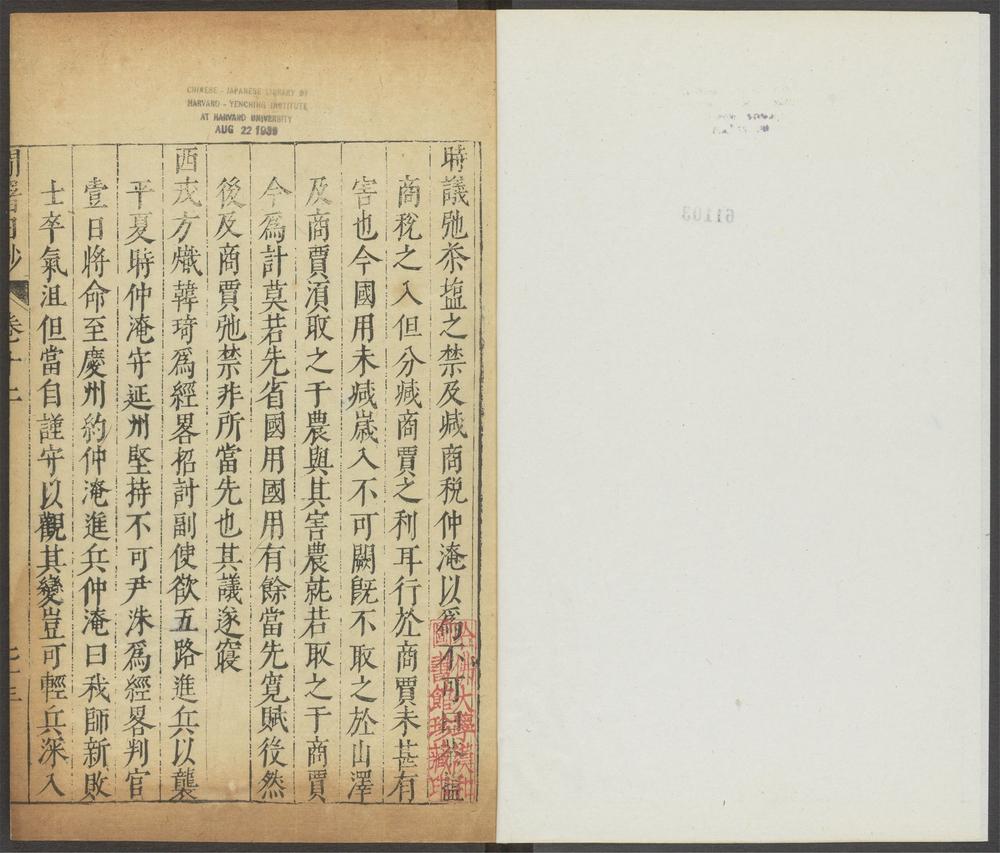 CHINESE - JAPANESE LIBRARY OF
HARVARD - YENCHING INSTITUTE
AT HARVARD UNIVERSITY
AUG 22 1939
61103
時議弛茶塩之禁及减商稅仲淹以爲不可曰茶塩
商稅之入但分减商賈之利耳行於商賈未甚有
害也今國用未减嵗入不可闕旣不取之於山澤
及商賈湏取之于農與其害農孰若取之于商賈
今爲計莫若先省國用國用有餘當先寬賦後然
後及商賈弛禁非所當先也其議遂寢
西戎方熾韓琦爲經畧招討副使欲五路進兵以襲
平夏時仲淹守延州堅持不可尹洙爲經畧判官
壹日將命至慶州約仲淹進兵仲淹曰我師新敗
士卒氣沮但當自謹守以觀其變豈可輕兵深入
卷十二
哈佛大學漢和
圖書館珍藏印